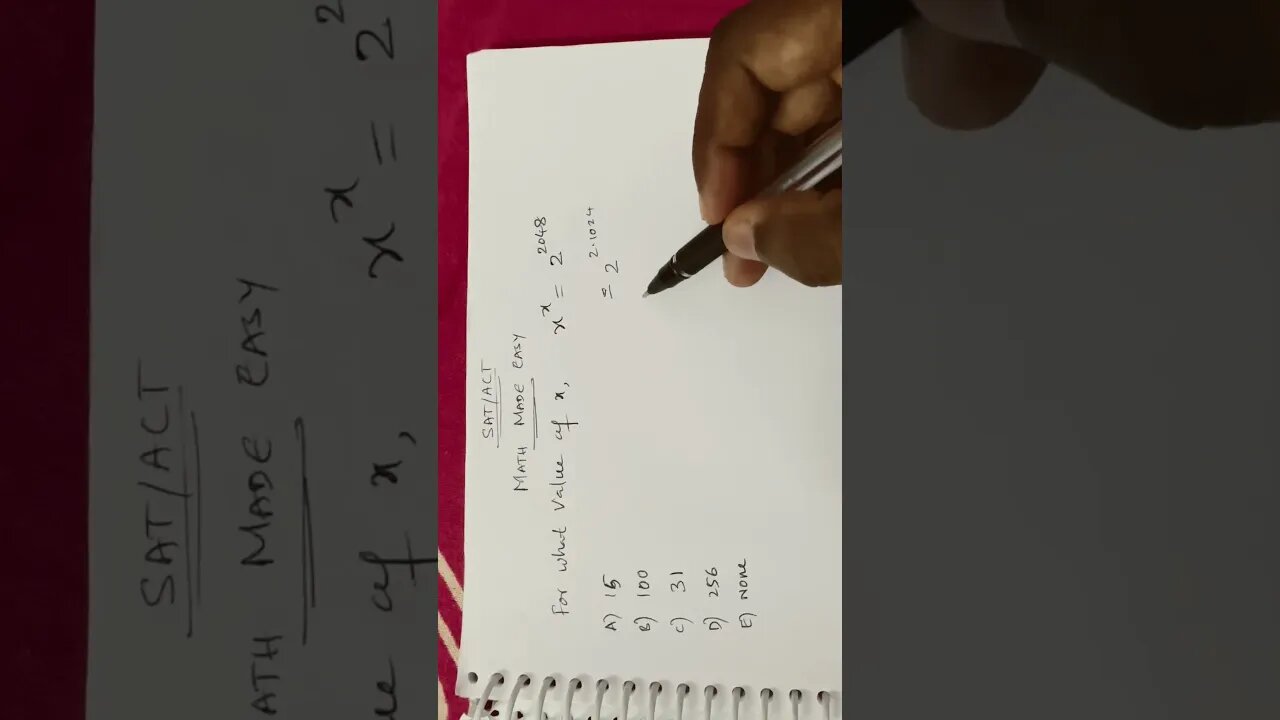 SAT/ACT
MATH MADE EASY
For what value of x, x^x = 2^2048
= 2^2.1024
A) 15
B) 100
C) 31
D) 256
E) NONE